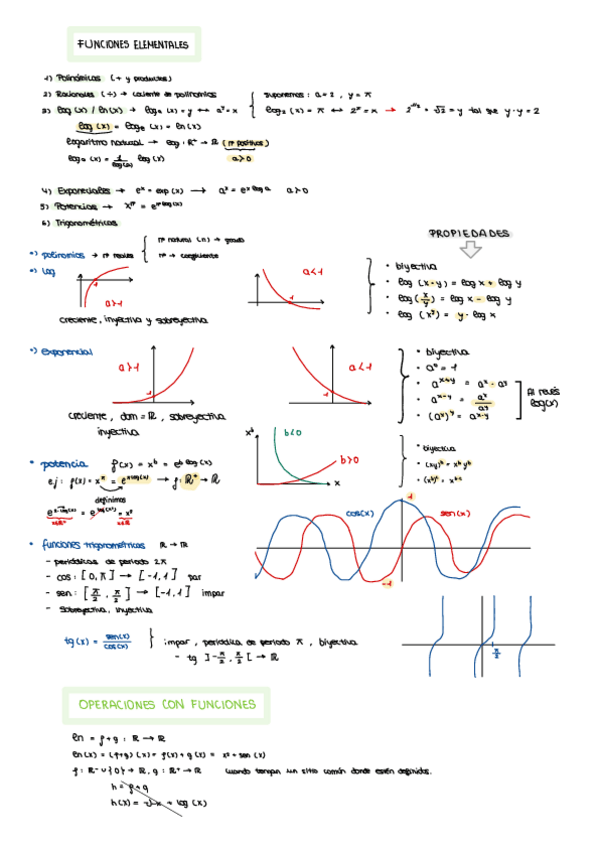 FUNCIONES ELEMENTALES
1) Polinómicas (+ y productos)
2) Racionales (÷) → cociente de polinomios
3) log(x) / ln(x) → logₐ(x) = y ↔ aʸ = x
suponemos: a = 2, y = π
log₂(x) = π ↔ 2^π = x →
log(x) = logₑ(x) = ln(x)
logaritmo natural → log: ℝ⁺ → ℝ (nº positivos)
logₐ(x) = 1/log(a) log(x) a>0
4) Exponenciales → eˣ = exp(x) → aˣ = e^(x log a) a>0
5) Potencias →
6) Trigonométricas
PROPIEDADES
•) polinomios → nº reales
nº natural (n) → grado
nº → coeficiente
•) log
1
a>1
a<1
1
creciente, inyectiva y sobreyectiva
• biyectiva
• log (x·y) = log x + log y
• log (x/y) = log x - log y
• log (xʸ) = y · log x
•) exponencial
a>1
1
a<1
1
creciente, dom = ℝ, sobreyectiva
inyectiva
• biyectiva
• a⁰ = 1
• aˣ⁺ʸ = aˣ · aʸ
• aˣ⁻ʸ = aˣ/aʸ
• (aˣ)ʸ = aˣ·ʸ
Al revés log(x)
xᵇ
b<0
b>0
x
• potencia f(x) = xᵇ = e^(b log(x))
ej: f(x) = x^π = e^(π log(x)) → f: ℝ⁺ → ℝ
definimos
• biyectiva
• (xy)ᵇ = xᵇ yᵇ
• funciones trigonométricas ℝ → ℝ
- periódicas de periodo 2π
- cos: [0, π] → [-1, 1] par
- sen: [π/2, π/2] → [-1, 1] impar
- sobreyectiva, inyectiva
1
cos(x)
sen(x)
-1
tg(x) = sen(x)/cos(x)
impar, periódica de periodo π, biyectiva
- tg ]-π/2, π/2[ → ℝ
π/2
OPERACIONES CON FUNCIONES
ln = f + g : ℝ → ℝ
ln(x) = (f+g)(x) = f(x) + g(x) = x² + sen(x)
f: ℝ⁻ ∪ {0} → ℝ, g: ℝ⁺ → ℝ cuando tengan un sitio común donde estén definidas.
h = f + g
h(x) = √-x + log(x)